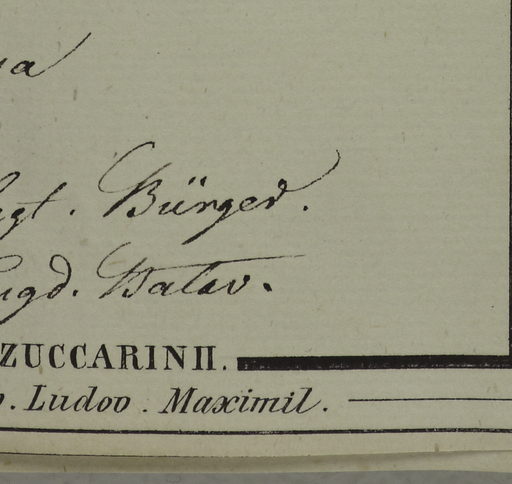 Bürger.
Lugd. Batav.
ZUCCARINII.
Ludov. Maximil.